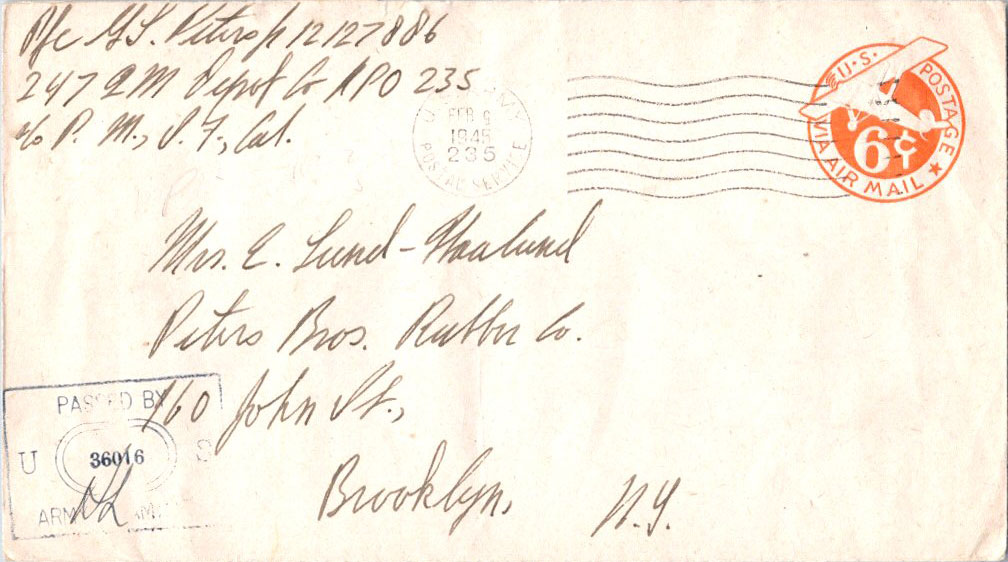 Pfc G.S. Petersp 12127886
247 QM Depot Co APO 235
c/o P. M., S. F., Cal.
U.S. ARMY
FEB 9
1945
235
POSTAL SERVICE
U.S. POSTAGE
6¢
VIA AIR MAIL
Mrs. E. Lund-Haalund
Peters Bros. Rubber Co.
160 John St.,
Brooklyn, N.Y.
PASSED BY
U 36016 S
ARMY